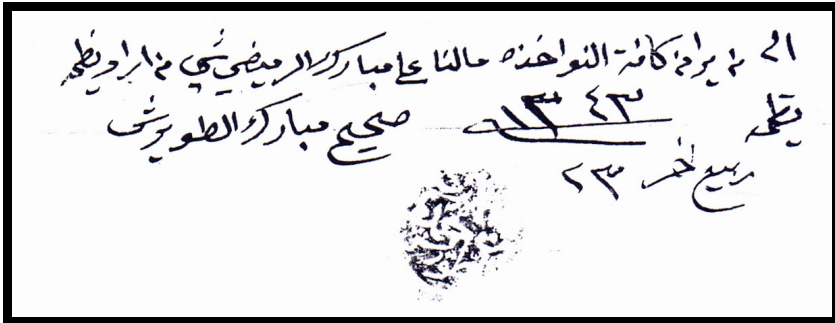 الى من يراه من كافة النواخذه مالنا على مبارك الرميضي شي من
١٣٤٣ صحيح مبارك الطويرش
ربيع اخر ٢٣